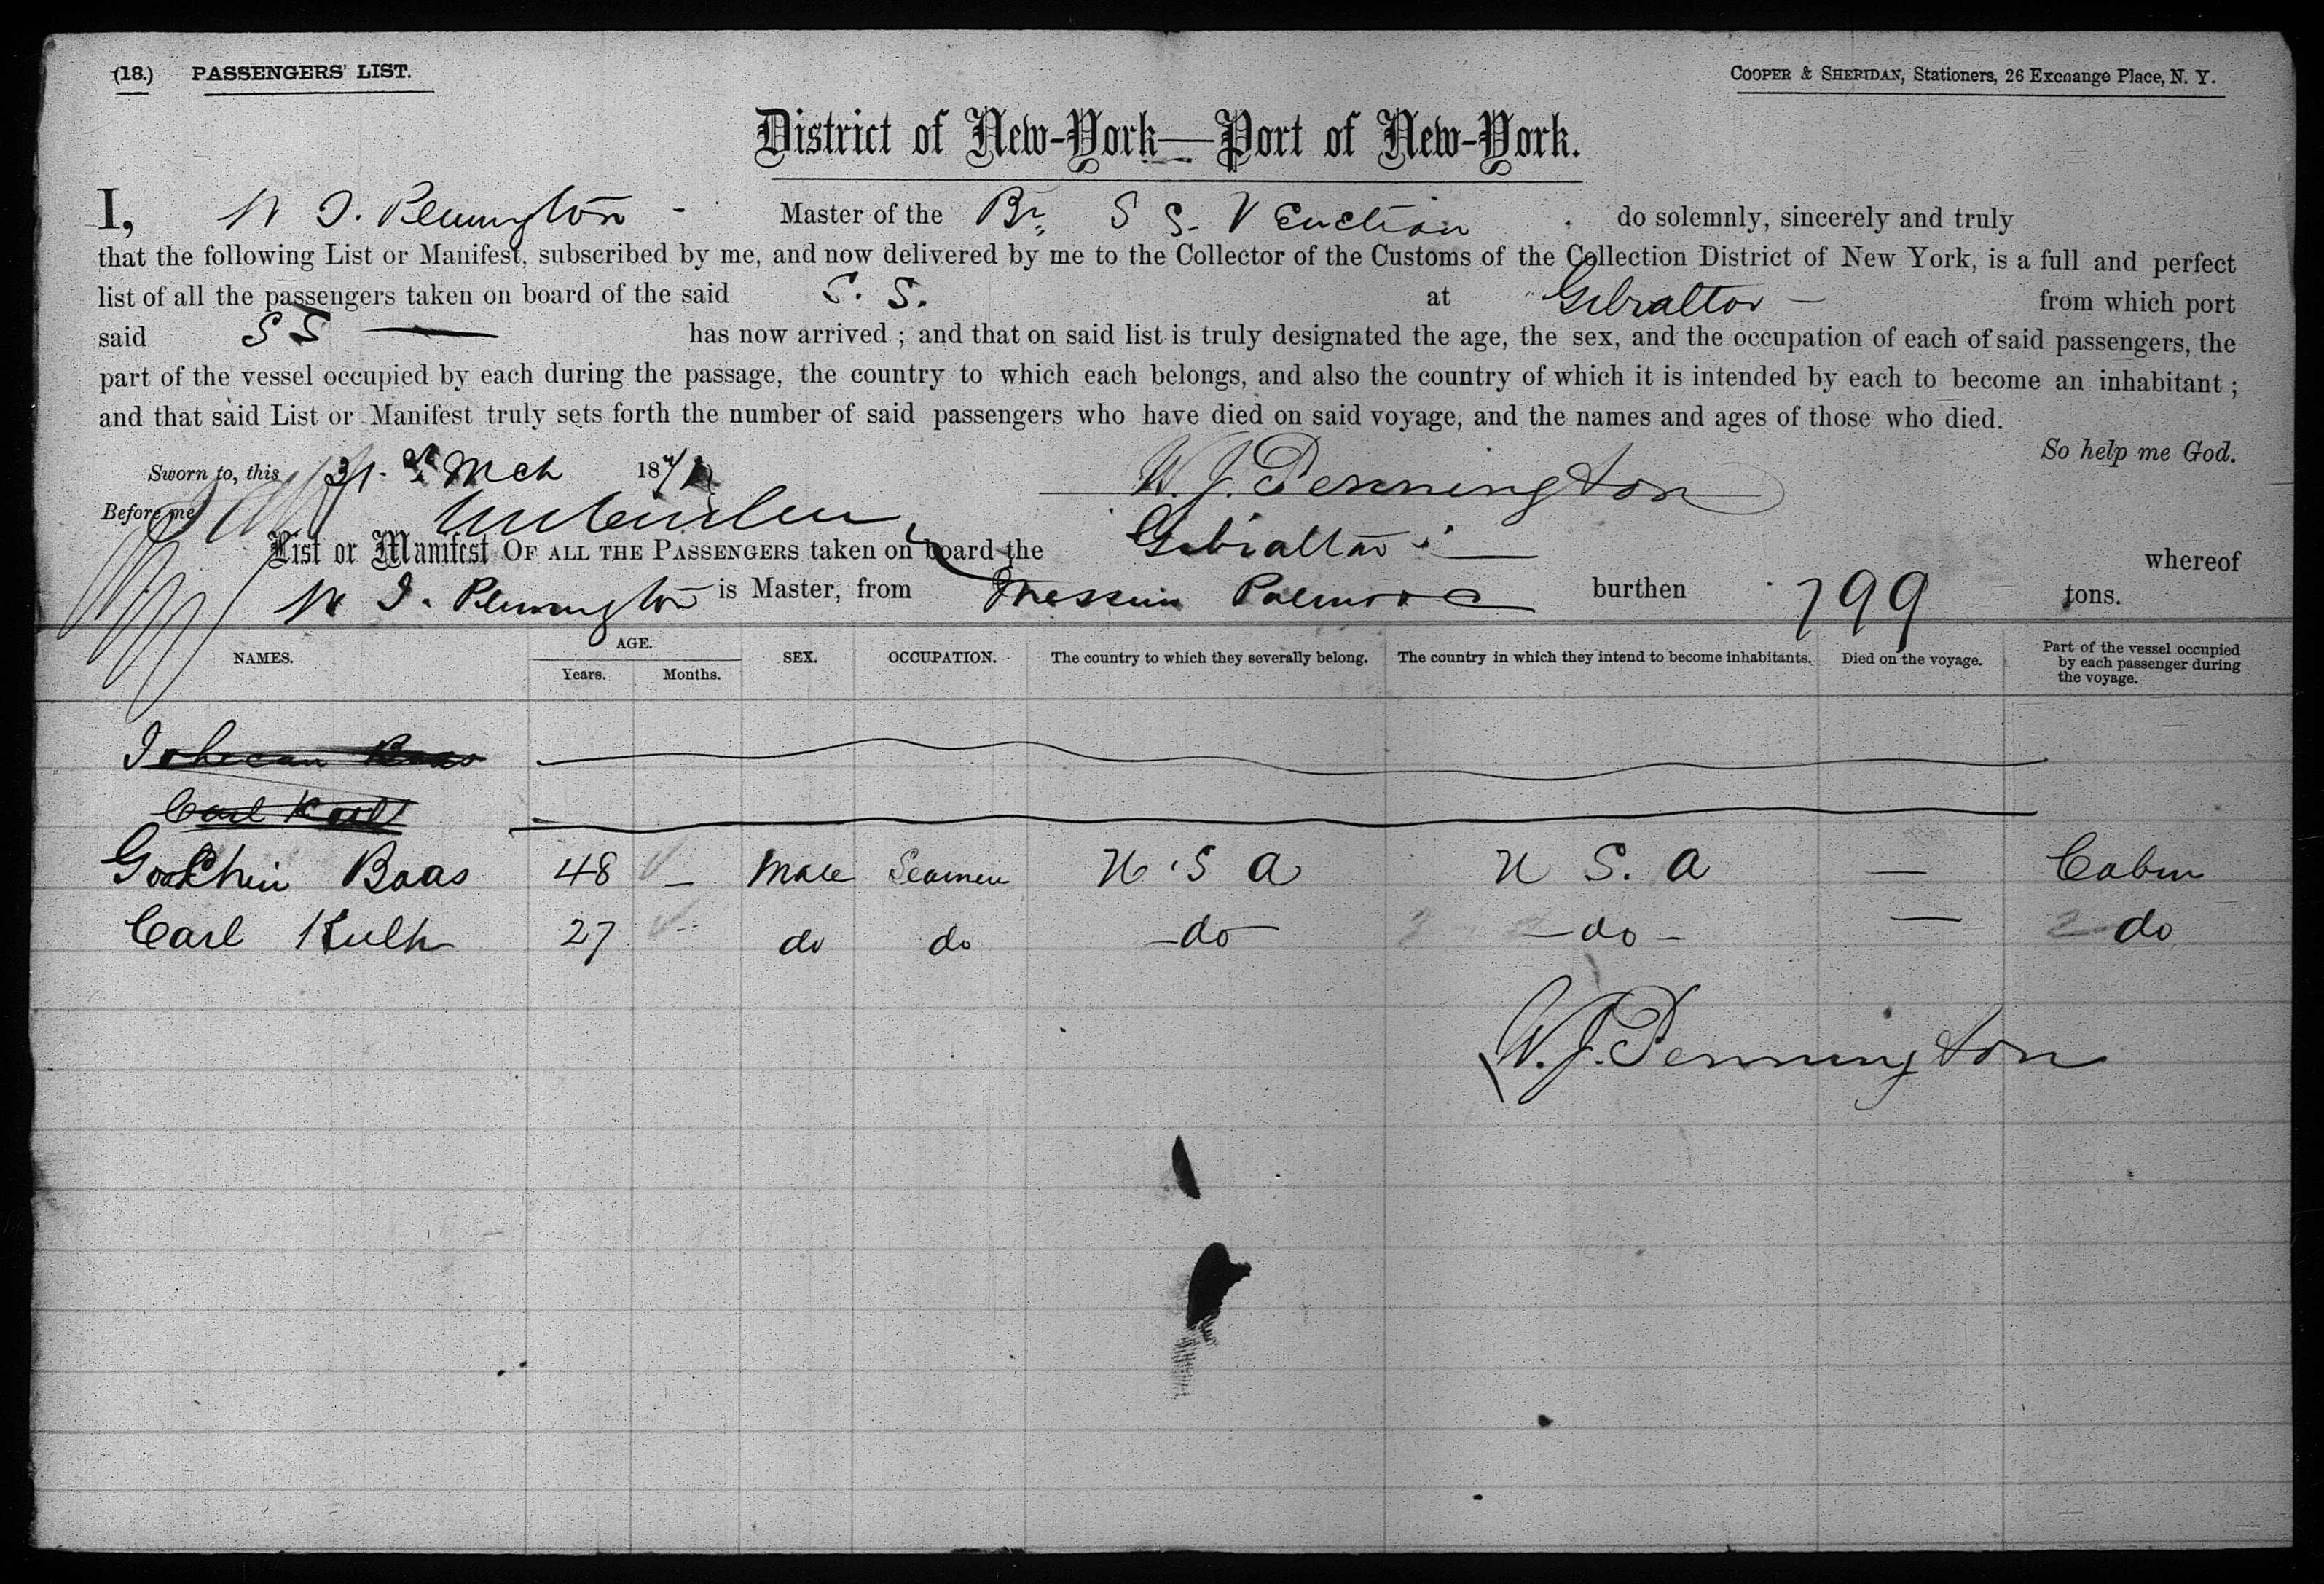 (18.) PASSENGERS' LIST.
COOPER & SHERIDAN, Stationers, 26 Exchange Place, N. Y.
District of New-York—Port of New-York.
I, W J. Pennington - Master of the Br S S. Venetian . do solemnly, sincerely and truly
that the following List or Manifest, subscribed by me, and now delivered by me to the Collector of the Customs of the Collection District of New York, is a full and perfect
list of all the passengers taken on board of the said S. S. at Gibraltar — from which port
said S S — has now arrived ; and that on said list is truly designated the age, the sex, and the occupation of each of said passengers, the
part of the vessel occupied by each during the passage, the country to which each belongs, and also the country of which it is intended by each to become an inhabitant ;
and that said List or Manifest truly sets forth the number of said passengers who have died on said voyage, and the names and ages of those who died.
So help me God.
Sworn to, this 31st Mch 187 W. J. Pennington
Before me
List or Manifest OF ALL THE PASSENGERS taken on board the Gibraltar — whereof
W J. Pennington is Master, from Messina Palermo burthen 799 tons.
NAMES. AGE. Years. Months. SEX. OCCUPATION. The country to which they severally belong. The country in which they intend to become inhabitants. Died on the voyage. Part of the vessel occupied by each passenger during the voyage.
Baas
Carl
Baas 48 — Male Seamen U S A U S. A — Cabin
Carl Kulh 27 do do —do— —do— — do
W. J. Pennington